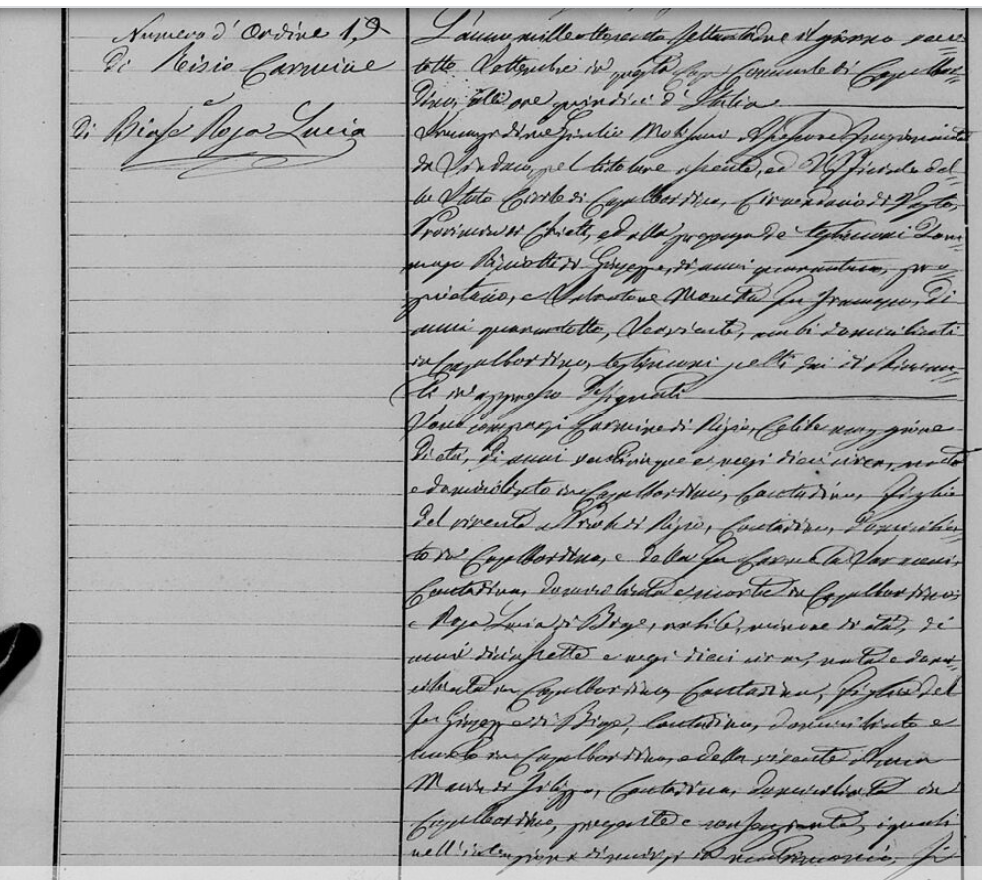 Numero d'Ordine 19
Di Risio Carmine
e
Di Biase Rosa Lucia
L'anno milleottocento settantadue il giorno
totto Settembre in questa Casa Comunale di Casalbor=
dino, alle ore quindici d'Italia
Innanzi di me Giulio Assessore
da Sindaco, pel titolare assente, ed Uffiziale del=
lo Stato Civile di Casalbordino, Circondario di Vasto,
Provincia di Chieti, ed alla presenza de' testimoni Tom=
maso di Giuseppe, di anni quarantuno, pro=
prietario, e Salvatore fu Francesco, di
anni quarantotto, ambi domiciliati
in Casalbordino, testimoni
ti in appresso designati
Sono comparsi Carmine di Risio, Celibe maggiore
di età, di anni venticinque e mesi dieci circa, nato
e domiciliato in Casalbordino, Contadino, figlio
del vivente di Risio, Contadino, domicilia=
to in Casalbordino, e della fu
Contadina, domiciliata e morta in Casalbordino,
e Rosa Lucia di Biase, nubile, minore di età, di
anni diciassette e mesi dieci circa, nata e domi=
ciliata in Casalbordino, Contadina, figlia del
fu Giuseppe di Biase, Contadino, domiciliato e
morto in Casalbordino, e della vivente Anna
Maria di Filippo, Contadina, domiciliata in
Casalbordino, presente e consenziente, i quali
nell'intenzione di unirsi in matrimonio, si